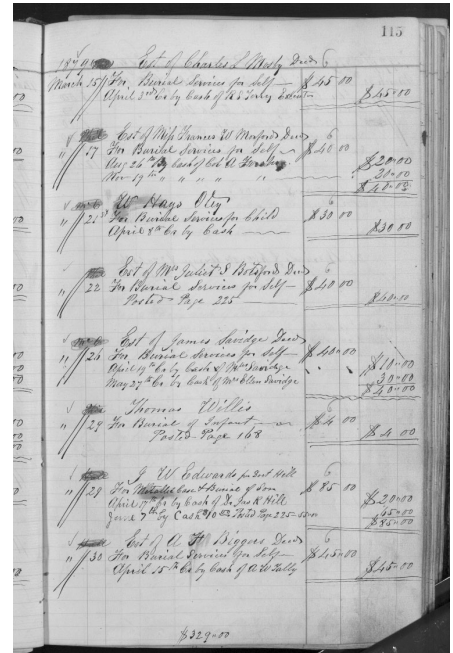 115
Est of Charles L Mosby Decd 6
March 15 For Burial Services for Self $45.00
April 3rd Cr by Cash of $45.00
Est of Miss Frances W Decd 6
" 17 For Burial Services for Self $40.00
Aug 26th By Cash of Col A $20.00
Nov 19th " " " " " 20.00
$40.00
W Hays Otey 6
" 21st For Burial Services for Child $30.00
April 8th Cr by Cash $30.00
Est of Mrs Juliet S Botsford Decd 6
" 22 For Burial Services for Self $40.00
Posted Page 225 $40.00
Est of James Savidge Decd 6
" 26 For Burial Services for Self $40.00
April 19th Cr by Cash of Mrs Savidge $10.00
May 27th Cr by Cash of Mrs Ellen Savidge 30.00
$40.00
Thomas Willis 6
" 29 For Burial of Infant $4.00
Posted Page 168 $4.00
J W Edwards for Hill 6
" 28 For Metallic Case & Burial of Son $85.00
April 17th Cr by Cash of Dr Jas K Hill $20.00
June 7th by Cash $10 Posted Page 225-55.00 65.00
$85.00
Est of A H Biggers Decd 6
" 30 For Burial Services for Self $45.00
April 15th Cr by Cash of A W Talley $45.00
$329.00